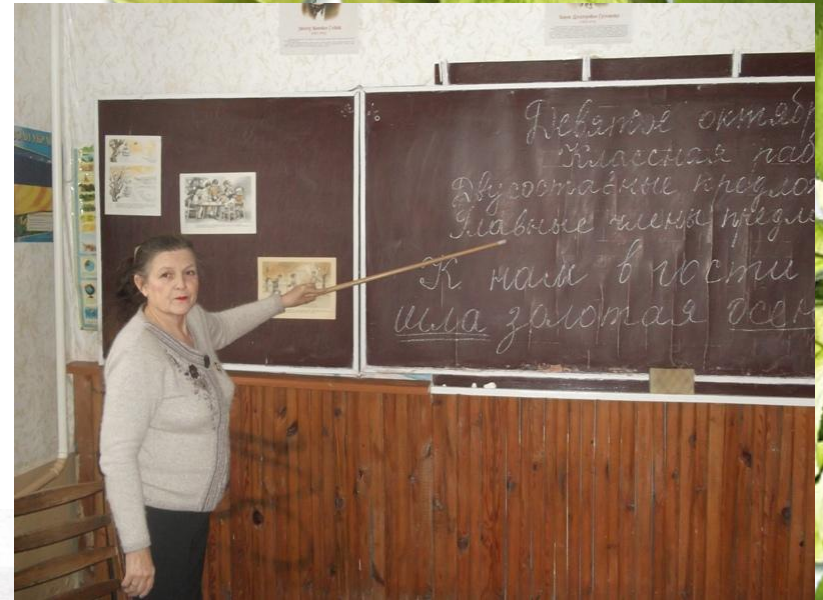 Девятое октябр
Классная раб
Двусоставные предло
Главные члены предло
К нам в гости
шла золотая осен